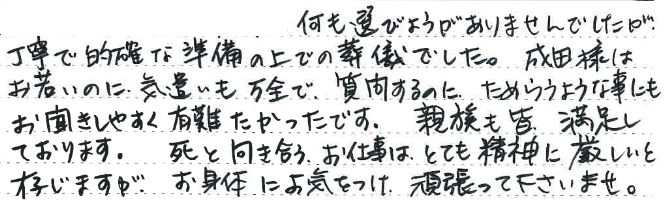 何も選びようがありませんでしたが
丁寧で的確な準備の上での葬儀でした。成田様は
お若いのに、気遣いも万全で、質問するのに、ためらうような事にも
お聞きしやすく有難たかったです。親族も皆、満足し
ております。死と向き合う、お仕事は、とても精神に厳しいと
存じますが、お身体にお気をつけ、頑張って下さいませ。